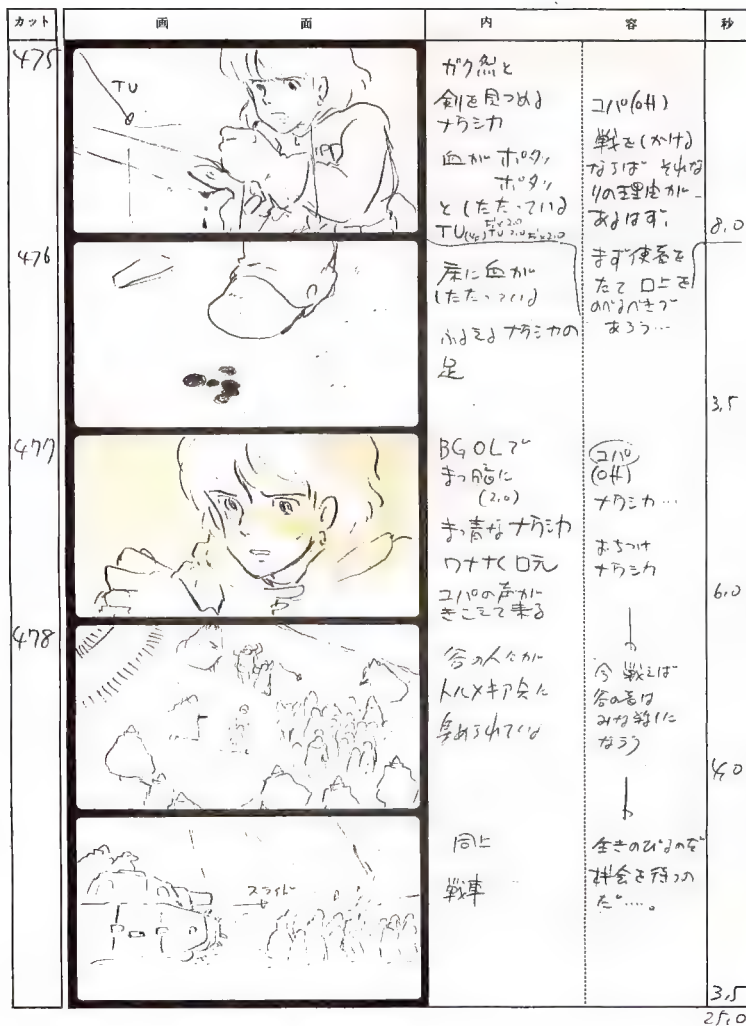 カット 画面 内容 秒
475
TU
ガク然と
剣を見つめる
ナウシカ
血が ポタッ
ポタッ
としたたっている
コパ(off)
戦をしかけ
るならば それな
りの理由が
あるはず。
8.0
476
床に血が
したたっている
ふるえるナウシカの
足
まず使者を
たて 口上を
のべるべきで
あろう…
3.5
477
BG OLで
まっ暗に
(2.0)
まっ青なナウシカ
ワナナく口元
ユパの声が
きこえて来る
ユパ
(off)
ナウシカ…
おちつけ
ナウシカ
6.0
478
谷の人たが
トルメキア兵に
集められている
今 戦えば
谷の者は
みな殺しに
なろう
4.0
スライド
同上
戦車
生きのびるのだ
機会を待つの
だ……。
3.5
25.0